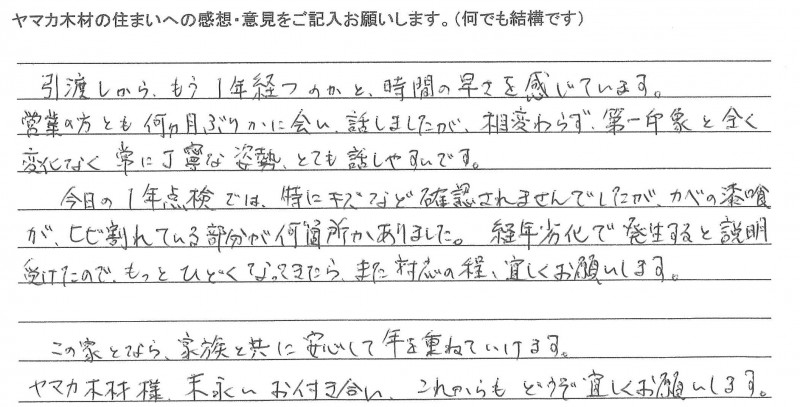 ヤマカ木材の住まいへの感想・意見をご記入お願いします。（何でも結構です）
引渡しから、もう1年経つのかと、時間の早さを感じています。
営業の方とも何ヵ月ぶりかに会い、話しましたが、相変わらず、第一印象と全く
変化なく常に丁寧な姿勢、とても話しやすいです。
今日の1年点検では、特にキズなど確認されませんでしたが、カベの漆喰
が、ヒビ割れている部分が何箇所かありました。経年劣化で発生すると説明
受けたので、もっとひどくなってきたら、また対応の程、宜しくお願いします。
この家となら、家族と共に安心して年を重ねていけます。
ヤマカ木材様、末永いお付き合い、これからもどうぞ宜しくお願いします。